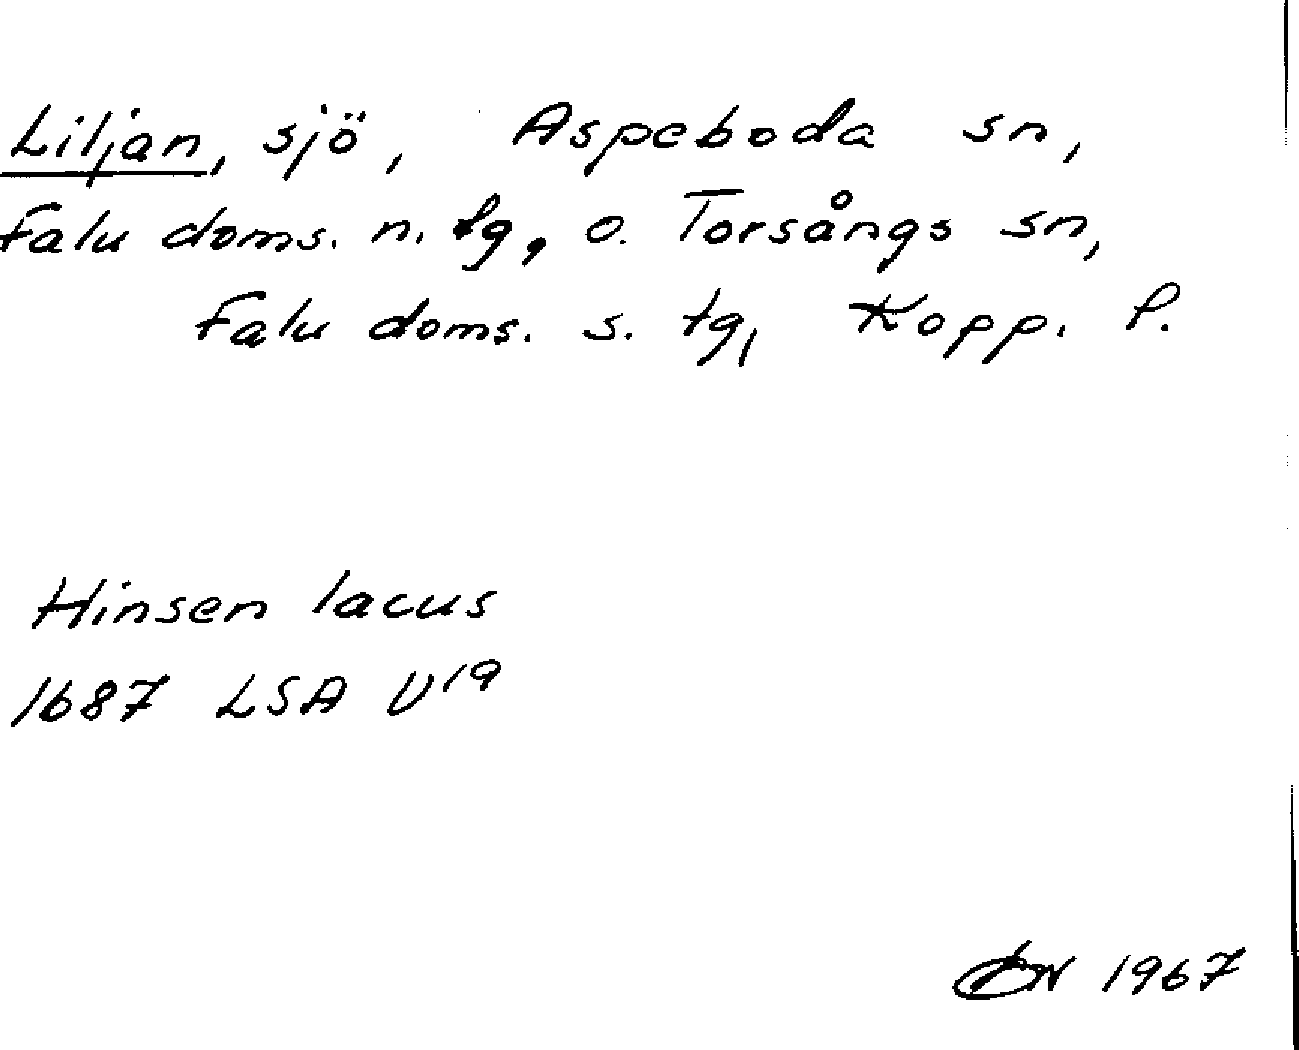 Liljan, sjö, Aspeboda sn,
Falu doms. n. tg, o. Torsångs sn,
Falu doms. s. tg, Kopp. l.
Hinsen lacus
1687 LSA U19
1967